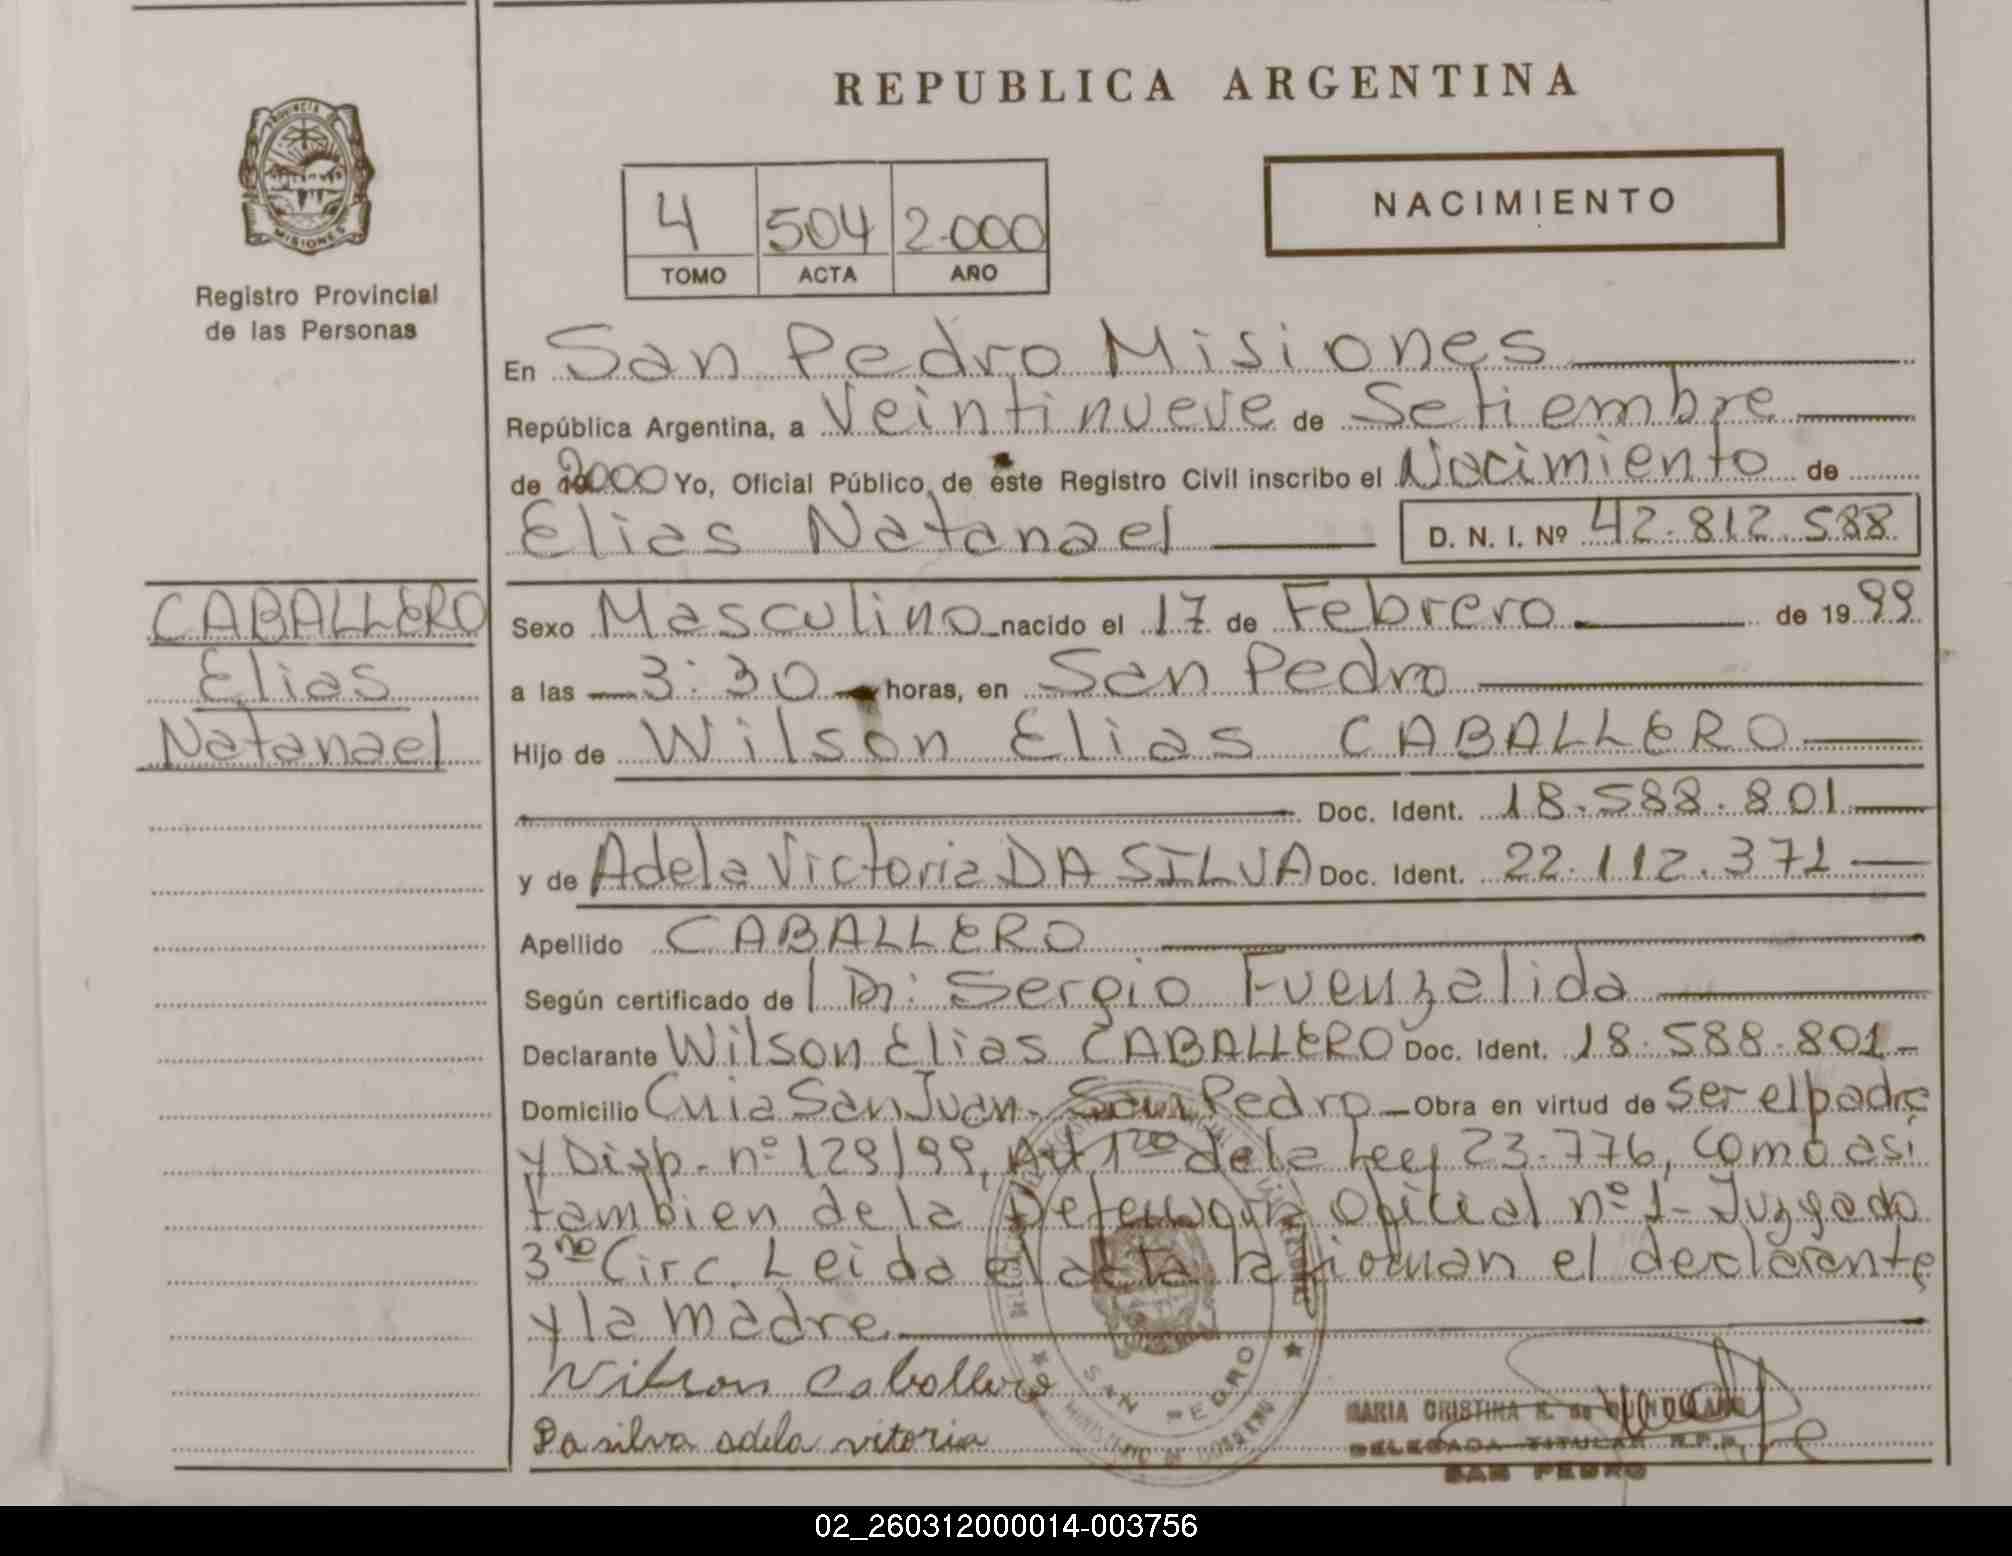 REPUBLICA ARGENTINA
PROVINCIA DE
MISIONES
Registro Provincial
de las Personas
4 504 2.000
TOMO ACTA AÑO
NACIMIENTO
En San Pedro Misiones
República Argentina, a Veintinueve de Setiembre
de 2000 Yo, Oficial Público, de este Registro Civil inscribo el Nacimiento de
Elias Natanael D. N. I. Nº 42.812.588
CABALLERO
Elias
Natanael
Sexo Masculino nacido el 17 de Febrero de 1999
a las 3:30 horas, en San Pedro
Hijo de Wilson Elias CABALLERO
Doc. Ident. 18.588.801
y de Adela Victoria DA SILVA Doc. Ident. 22.112.371
Apellido CABALLERO
Según certificado de Dr: Sergio Fuenzalida
Declarante Wilson Elias CABALLERO Doc. Ident. 18.588.801-
Domicilio Cuia San Juan - San Pedro - Obra en virtud de ser el padre
y Disp. nº 129/99, Art 1ro de la Ley 23.776, como asi
tambien de la Defensoria Oficial nº 1 - Juzgado
3ro Circ. Leida el acta la firman el declarante
y la madre
Wilson Caballero
Da silva adela vitoria
SAN PEDRO
MINISTERIO DE GOBIERNO
MARIA CRISTINA R. de
DELEGADA TITULAR R.P.P.
SAN PEDRO
02_260312000014-003756